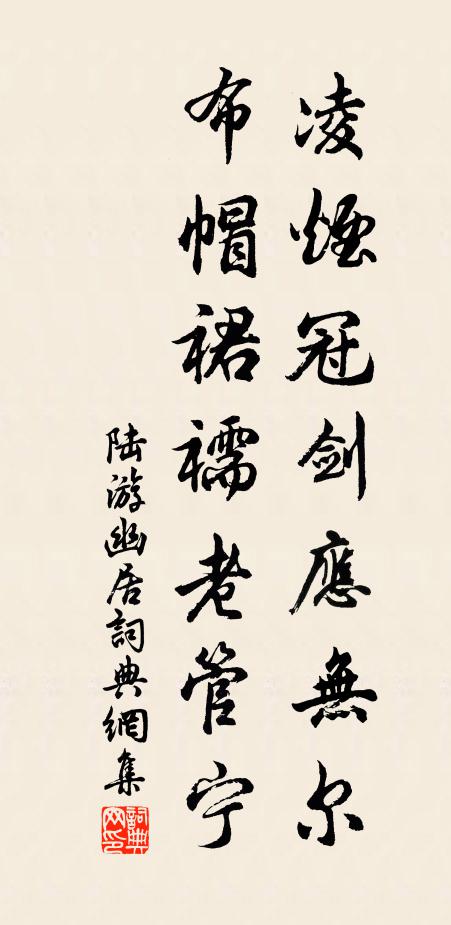 凌煙冠劍應無尔
布帽裙襦老管宁
陸游幽居詞典網集
詞典網印